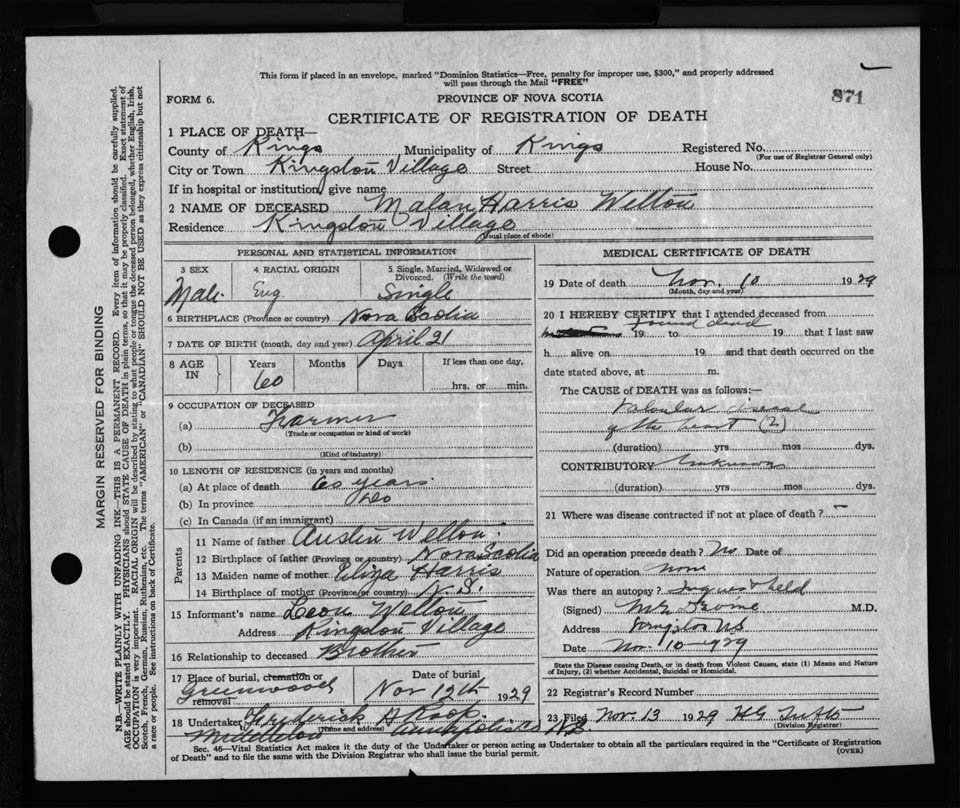 This form if placed in an envelope, marked "Dominion Statistics—Free, penalty for improper use, $300," and properly addressed
will pass through the Mail "FREE"
871
FORM 6.
PROVINCE OF NOVA SCOTIA
CERTIFICATE OF REGISTRATION OF DEATH
1 PLACE OF DEATH—
County of Kings Municipality of Kings Registered No.
(For use of Registrar General only)
City or Town Kingston Village Street House No.
If in hospital or institution, give name
2 NAME OF DECEASED Malan Harris Welton
Residence Kingston Village
(usual place of abode)
PERSONAL AND STATISTICAL INFORMATION
3 SEX 4 RACIAL ORIGIN 5 Single, Married, Widowed or
Divorced. (Write the word)
Male. Eng. Single
6 BIRTHPLACE (Province or country) Nova Scotia
7 DATE OF BIRTH (month, day and year) April 21
8 AGE IN Years Months Days If less than one day,
60 hrs. or min.
9 OCCUPATION OF DECEASED
(a) Farmer
(Trade or occupation or kind of work)
(b)
(Kind of industry)
10 LENGTH OF RESIDENCE (in years and months)
(a) At place of death 60 years.
(b) In province do
(c) In Canada (if an immigrant)
Parents
11 Name of father Austin Welton.
12 Birthplace of father (Province or country) Nova Scotia
13 Maiden name of mother Eliza Harris
14 Birthplace of mother (Province or country) N.S.
15 Informant's name Leon Welton
Address Kingston Village
16 Relationship to deceased Brother
17 Place of burial, cremation or Date of burial
removal Greenwood Nov 12th 1929
18 Undertaker Frederick A Roop
(Name and address)
Middleton Annapolis Co N.S.
MEDICAL CERTIFICATE OF DEATH
19 Date of death Nov. 10 1929
(Month, day and year)
20 I HEREBY CERTIFY that I attended deceased from
found dead
19 to 19 that I last saw
h alive on 19 and that death occurred on the
date stated above, at m.
The CAUSE of DEATH was as follows:—
Valvular disease
of the heart (?)
(duration) yrs mos dys.
CONTRIBUTORY Unknown
(duration) yrs mos dys.
21 Where was disease contracted if not at place of death? —
Did an operation precede death? No Date of
Nature of operation none
Was there an autopsy? Inquest held
(Signed) M.D.
Address Kingston NS
Date Nov. 10-1929
State the Disease causing Death, or in death from Violent Causes, state (1) Means and Nature
of Injury, (2) whether Accidental, Suicidal or Homicidal.
22 Registrar's Record Number
23 Filed Nov. 13 1929 HG Tufts
(Division Registrar)
Sec. 46—Vital Statistics Act makes it the duty of the Undertaker or person acting as Undertaker to obtain all the particulars required in the "Certificate of Registration
of Death" and to file the same with the Division Registrar who shall issue the burial permit.
(OVER)
MARGIN RESERVED FOR BINDING
N.B.—WRITE PLAINLY WITH UNFADING INK—THIS IS A PERMANENT RECORD. Every item of information should be carefully supplied.
AGE should be stated EXACTLY. PHYSICIANS should STATE CAUSE OF DEATH in plain terms, so that it may be properly classified. Exact statement of
OCCUPATION is very important. RACIAL ORIGIN will be described by stating to what people or tongue the deceased person belonged, whether English, Irish,
Scotch, French, German, Russian, Ruthenian, etc. The terms "AMERICAN" or "CANADIAN" SHOULD NOT BE USED as they express citizenship but not
a race or people. See instructions on back of Certificate.